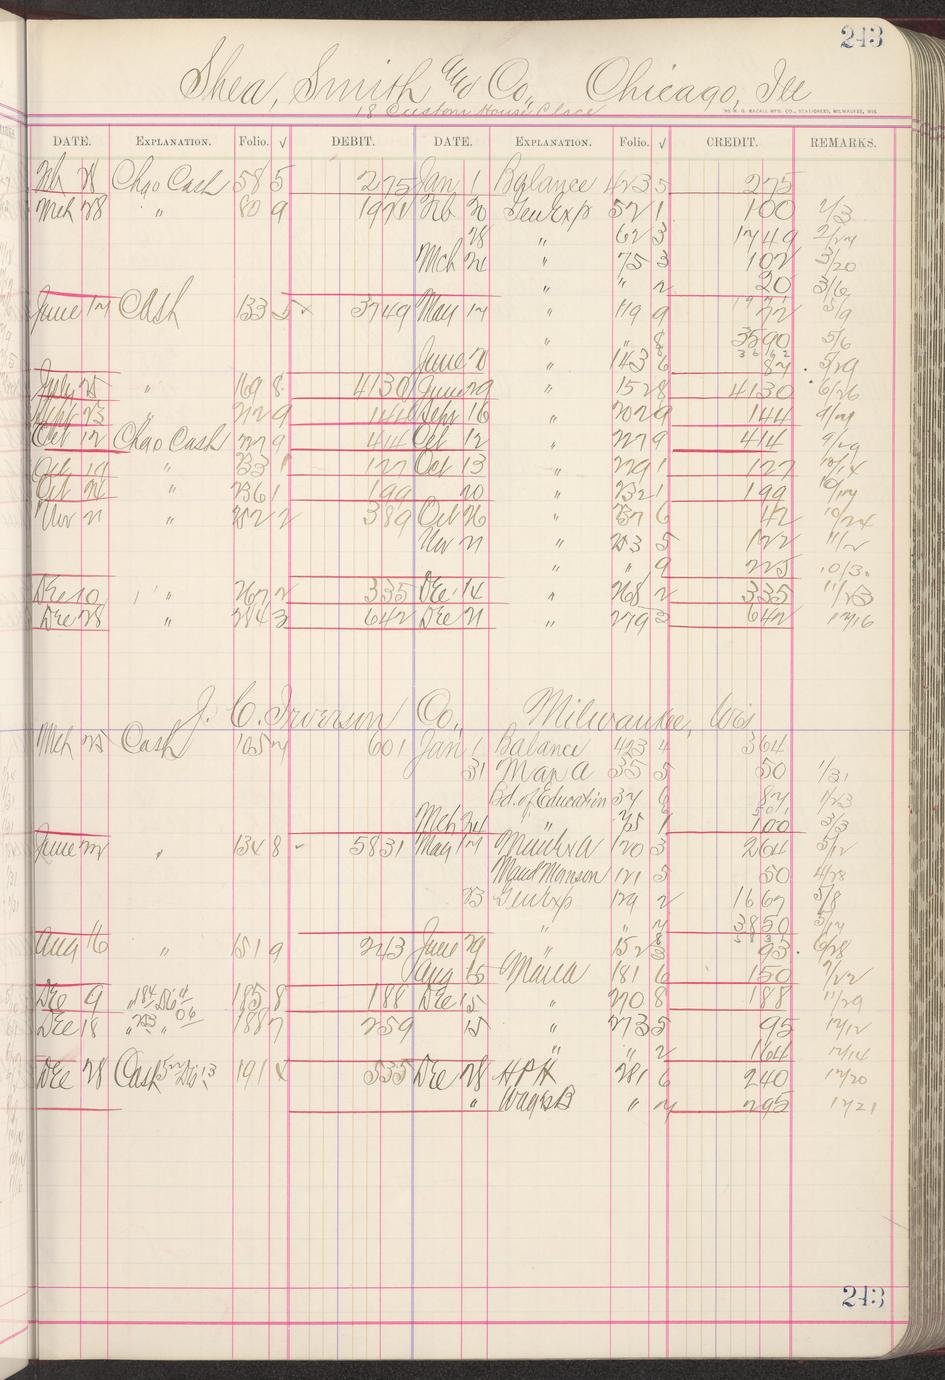 243
Shea, Smith and Co, Chicago, Ill
18 Custom House Place
DATE. EXPLANATION. Folio. √ DEBIT. DATE. EXPLANATION. Folio. √ CREDIT. REMARKS.
Feb 28 Chgo Cash 58 5 275 Jan 1 Balance 423 5 275
Mch 28 " 80 9 1971 Feb 20 Gen Exp 52 1 100 2/3
28 " 62 3 1749 2/27
Mch 24 " 75 3 102 3/20
" " 2 20 3/6
June 17 Cash 133 5 3749 May 17 " 119 9 72 5/9
" " 8 3590 5/6
June 20 " 143 6 87 5/29
July 25 " 169 8 4130 June 29 " 152 8 4130 6/26
Sept 23 " 212 9 144 Sept 16 " 202 9 144
Oct 12 Chgo Cash 227 9 414 Oct 12 " 227 9 414 9/29
Oct 19 " 233 1 127 Oct 13 " 229 1 127 10/14
Oct 24 " 236 1 199 20 " 232 1 199 10/17
Nov 21 " 252 2 389 Oct 26 " 237 6 42 10/24
Nov 21 " 253 5 122 11/2
" " 9 225 10/3
Dec 10 " 267 2 335 Dec 14 " 268 2 335 11/23
Dec 28 " 284 3 642 Dec 21 " 279 3 642 12/16
J. C. Iverson Co., Milwaukee, Wis
Mch 25 Cash 105 7 601 Jan 1 Balance 423 4 364
31 Man A 35 5 50 1/31
Bd. of Education 37 6 87 1/23
Mch 24 " 75 1 100 3/3
June 22 " 134 8 5831 May 17 120 3 264 5/12
Maud Monson 121 5 50 4/28
23 Gen Exp 129 2 1667 5/8
" " 7 3850 5/17
Aug 16 " 151 9 243 June 29 " 152 8 93 6/28
Aug 15 181 6 150 7/22
Dec 9 " 185 8 188 Dec 5 " 270 8 188 11/29
Dec 18 " " 188 7 259 15 " 273 5 95 12/12
" " 2 164 12/14
Dec 28 Cash 191 4 535 Dec 28 H P H 281 6 240 12/20
" " 7 295 12/21
243